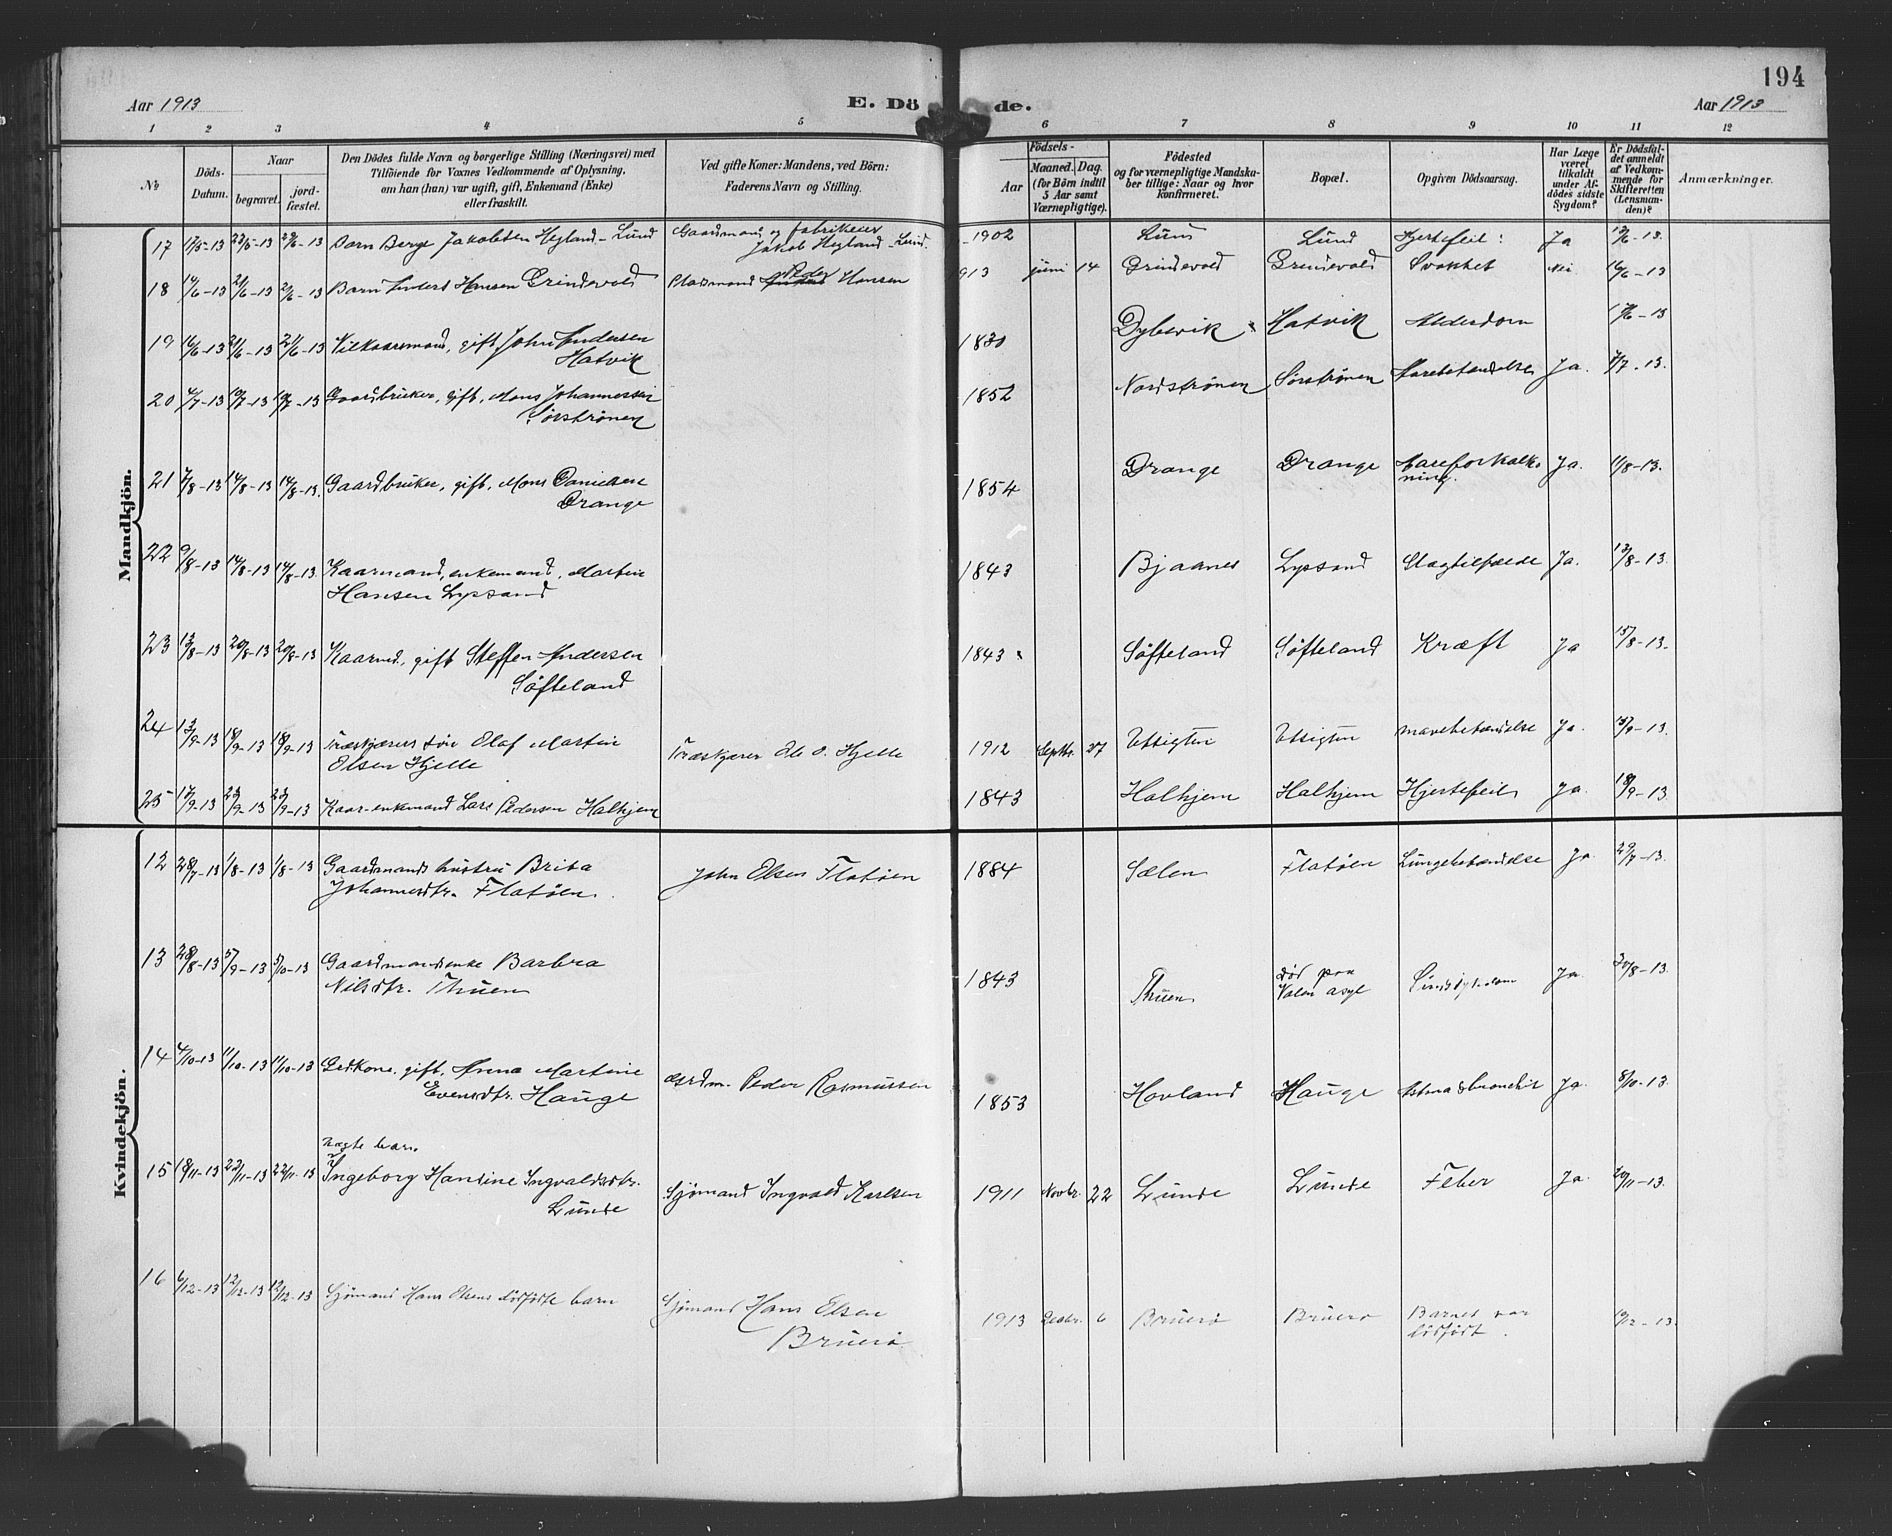 194
Aar 1913
E. Döde.
Aar 1913
1 2 3 4 5 6 7 8 9 10 11 12
№
Döds-Datum.
Naar
begravet.
jordfæstet.
Den Dödes fulde Navn og borgerlige Stilling (Næringsvei) med
Tilföiende for Voxnes Vedkommende af Oplysning,
om han (hun) var ugift, gift, Enkemand (Enke)
eller fraskilt.
Ved gifte Koner: Mandens, ved Börn:
Faderens Navn og Stilling.
Födsels-
Aar
Maaned. Dag.
(for Börn indtil
5 Aar samt
Værnepligtige).
Födested
og for værnepligtige Mandskaber tillige: Naar og hvor
konfirmeret.
Bopæl.
Opgiven Dödsaarsag.
Har Læge
været
tilkaldt
under Afdödes sidste
Sygdom?
Er Dödsfaldet anmeldt
af Vedkommende for
Skifteretten
(Lensmanden)?
Anmærkninger.
Mandkjön.
17 17/5-13 Barn Berge Jakobsen Hegland - Lund Gaardmand og fabrikeier
Jakob Hegland - Lund. 1902 Lund Lund Hjertefeil Ja
18 14/6-13 21/6-13 21/6-13 Barn Anders Hansen Grindevold Pladsmand Peder Hansen 1913 juni 14 Grindevold Grindevold Svakhet Nei 16/6-13
19 16/6-13 21/6-13 21/6-13 Vilkaarsmand, gift, John Andersen
Hatvik 1830 Dybevik Hatvik Alderdom 17/6-13
20 4/7-13 10/7-13 10/7-13 Gaardbruker, gift, Mons Johannessen
Sörströnen 1852 Nordströnen Sörströnen Ja. 7/7-13
21 7/8-13 14/8-13 14/8-13 Gaardbruker, gift, Mons Danielsen
Drange 1854 Drange Drange Aareforkalkning. Ja. 11/8-13.
22 9/8-13 14/8-13 14/8-13 Kaarmand, enkemand, Martin
Hansen Lysand 1843 Bjaanes Lysand Slagtilfælde Ja. 12/8-13.
23 13/8-13 20/8-13 20/8-13 Kaarmd., gift Steffen Andersen
Söfteland 1843 Söfteland Söfteland Kræft Ja 15/8-13.
24 13/9-13 18/9-13 18/9-13 Træskjærers sön Olaf Martin
Olsen Hjelle Træskjærer Ole O. Hjelle 1912 Septbr. 27 mavebetændelse Ja. 15/9-13.
25 17/9-13 23/9-13 23/9-13 Kaar-enkemand Lars Pedersen Halhjem 1843 Halhjem Halhjem Hjertefeil Ja. 18/9-13
Kvindekjön.
12 28/7-13 1/8-13 1/8-13 Gaardmands hustru Brita
Johannesdtr. Flatöen John Olsen Flatöen 1884 Sælen Flatöen Lungebetændelse Ja 29/7-13.
13 28/8-13 5/9-13 5/10-13 Gaardmandsenke Barbra
Nilsdtr. Thuen 1843 Thuen död paa
Valen asyl Sindssygdom Ja 30/8-13.
14 4/10-13 11/10-13 11/10-13 gift, Anna Martine
Evensdtr. Hauge Peder Rasmussen 1853 Hovland Hauge Astma & bronchit Ja. 8/10-13.
15 18/11-13 22/11-13 22/11-13 Ægte barn.
Ingeborg Hansine Ingvaldsdtr.
Lunde Sjömand Ingvald Karlsen 1911 Novbr. 22 Lunde Lunde Feber Ja. 20/11-13.
16 6/12-13 12/12-13 12/12-13 Sjömand Hans Olsens dödfödte barn Sjömand Hans Olsen
Bruerö 1913 Decbr. 6 Bruerö Bruerö Barnet var
dödfödt. 10/12-13.